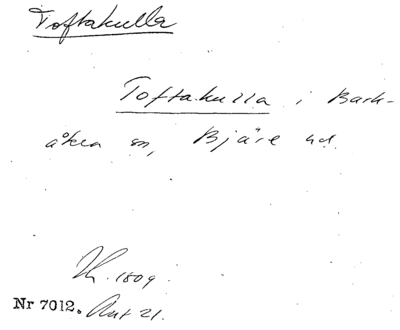 Toftakulla
Toftakulla i Bark-
åkra sn, Bjäre hd
1809.
Nr 7012. Akt 21.